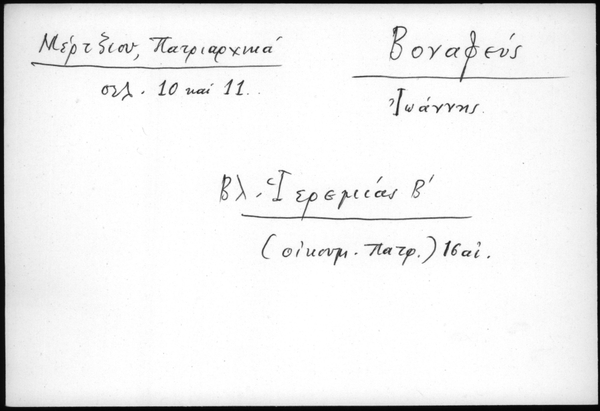 Μέρτζιου, Πατριαρχικά
σελ. 10 καί 11.
Βοναφεύς
Ἰωάννης.
Βλ. Ἱερεμίας Β΄
(οἰκουμ. Πατρ.) 16 αἰ.